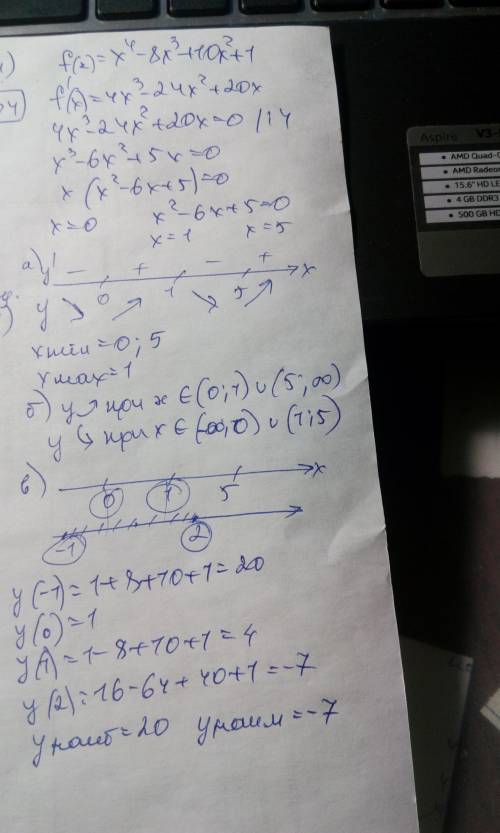 1) f(2)=x⁴-8x³+10x²+1
f'(x)=4x³-24x²+20x
4x³-24x²+20x=0 /:4
x³-6x²+5x=0
x(x²-6x+5)=0
x=0 x²-6x+5=0
x=1 x=5
а) y' - + - + x
0 1 5
y ↘ ↗ ↘ ↗
xmin=0;5
xmax=1
б) y ↗ при x ∈ (0;1) ∪ (5;∞)
y ↘ при x ∈ (-∞;0) ∪ (1;5)
в) 0 1 5 x
-1 2
y(-1)=1+8+10+1=20
y(0)=1
y(1)=1-8+10+1=4
y(2)=16-64+40+1=-7
yнаиб=20 yнаим=-7
Aspire V3-
• AMD Quad-C
• AMD Radeon
• 15.6" HD LE
• 4 GB DDR3
• 500 GB HD